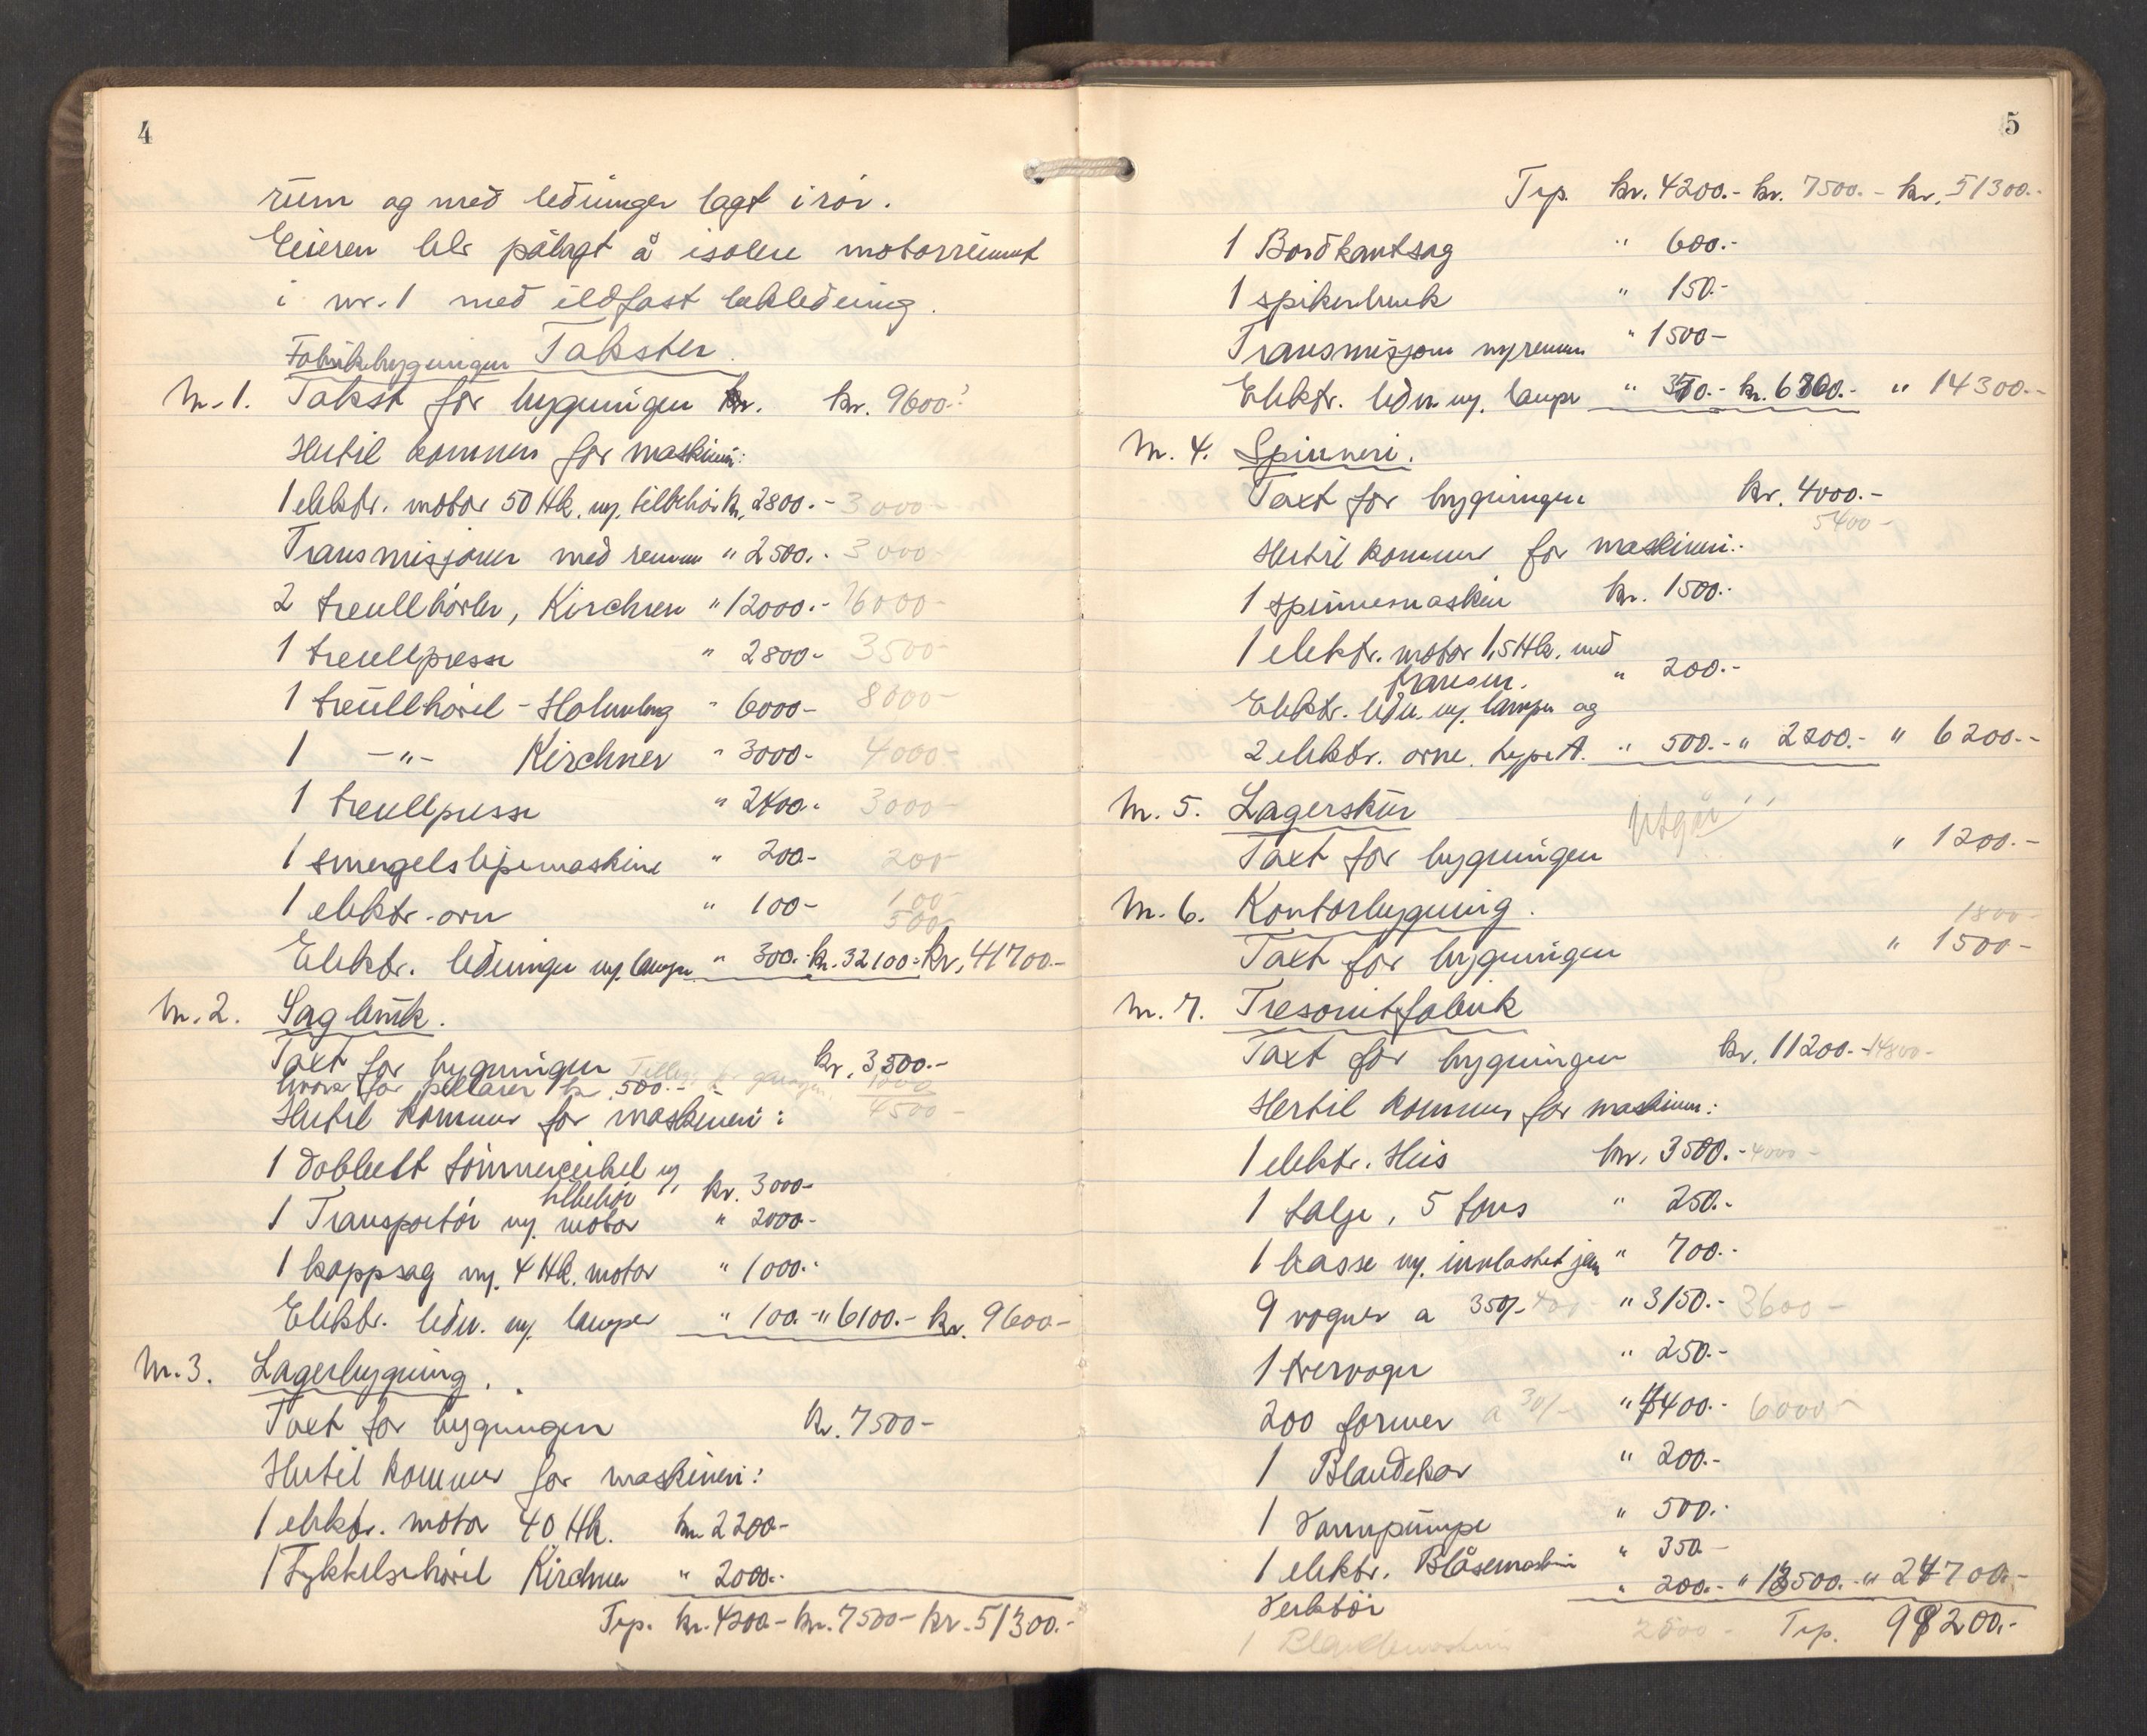 4
rum og med ledninger lagt i rör.
Eieren ble pålagt å isolere motorrummet
i nr. 1 med ildfast bekledning.
Fabrikbygningen Takster.
Nr. 1. Takst for bygningen kr. kr. 9600.-
Hertil kommer for maskineri:
1 elektr. motor 50 Hk. m. tilbehör kr. 2800.- 3000-
Transmisjoner med remmer " 2500.- 3000-
2 treullhövler, Kirchner " 12000.- 16000-
1 treullpresse " 2800- 3500-
1 treullhövel - Holmberg " 6000- 8000-
1 -"- Kirchner " 3000- 4000-
1 treullpresse " 2400.- 3000-
1 smergelslipemaskine " 200- 200-
1 elektr. ovn " 100- 100-
500
Elektr. ledninger m. lamper " 300.- kr. 32100.- kr. 41700.-
Nr. 2. Sagbruk.
Taxt for bygningen kr. 3500.-
hvorav for pillarer kr. 500.- Tillegg for garagen 1000
Hertil kommer for maskineri: 4500-
1 dobbelt tömmercirkel m.
tilbehör kr. 3000-
1 Transportör m. motor " 2000-
1 kappsag m. 4 Hk. motor " 1000.-
Elektr. ledn. m. lamper " 100.- " 6100.- kr. 9600-
Nr. 3. Lagerbygning.
Taxt for bygningen kr. 7500-
Hertil kommer for maskineri:
1 elektr. motor 40 Hk. kr. 2200-
1 Tykkelsehövel Kirchner " 2000.-
Trp. kr. 4200- kr. 7500- kr. 51300.-
5
Trp. kr. 4200.- kr. 7500.- kr. 51300.-
1 Bordkantsag " 600.-
1 spikerbenk " 150.-
Transmisjon m/remmer " 1500-
Elektr. ledn. m. lamper " 350.- kr. 6800.- " 14300.-
Nr. 4. Spinneri.
Taxt for bygningen kr. 4000.-
5400-
Hertil kommer for maskineri:
1 spinnemaskin kr. 1500.-
1 elektr. motor 1,5 Hk. med
transm. " 200.-
Elektr. ledn. m. lamper og
2 elektr. ovne. type A. " 500.- " 2200.- " 6200.-
Nr. 5. Lagerskur Utgår!
Taxt for bygningen " 1200.-
Nr. 6. Kontorbygning.
1800-
Taxt for bygningen " 1500-
Nr. 7. Tresonitfabrik
Taxt for bygningen kr. 11200.- 14800-
Hertil kommer for maskineri:
1 elektr. Heis kr. 3500.- 4000-
1 talje, 5 tons " 250.-
1 basse m. innlastet jern " 700.-
9 vogner a 350/- 400- " 3150.- 3600-
1 tversvogn " 250.-
200 former a 30/- " 4400.- 6000-
1 Blandekar " 200.-
1 Vannpumpe " 500.-
1 elektr. Blåsemaskin " 350-
Verktöi " 200.- " 13500.- " 24700.-
1 Blandemaskin 2500- Trp. 99200.-